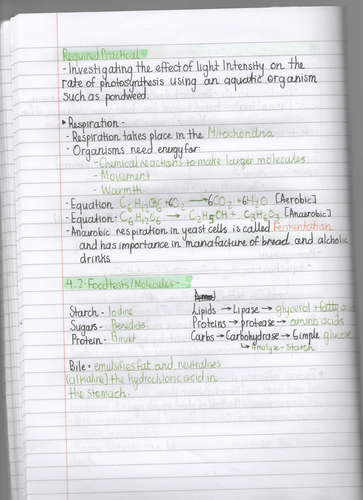 Required Practical -
- Investigating the effect of light Intensity on the
rate of photosynthesis using an aquatic organism
such as pondweed.
• Respiration -
- Respiration takes place in the Mitochondria
- Organisms need energy for:
- Chemical reactions to make larger molecules
- Movement
- Warmth
- Equation C6H12O6 + 6O2 → 6CO2 + 6H2O [Aerobic]
- Equation C6H12O6 → C2H5OH + C3H6O3 [Anaerobic]
- Anaerobic respiration in yeast cells is called Fermentation
and has importance in manafacture of bread and alcholic
drinks
4.2 - Food tests / Molecules -
Starch - Iodine
Sugars - Benedicts
Protein - Biuret
Lipids → Lipase → glycerol + fatty
Proteins → protease → amino acids
Carbs → Carbohydrase → Simple glucose
↳ Amalyse - Starch
Bile - emulsifies fat and neutralises
(alkaline) the hydrochloric acid in
the stomach.